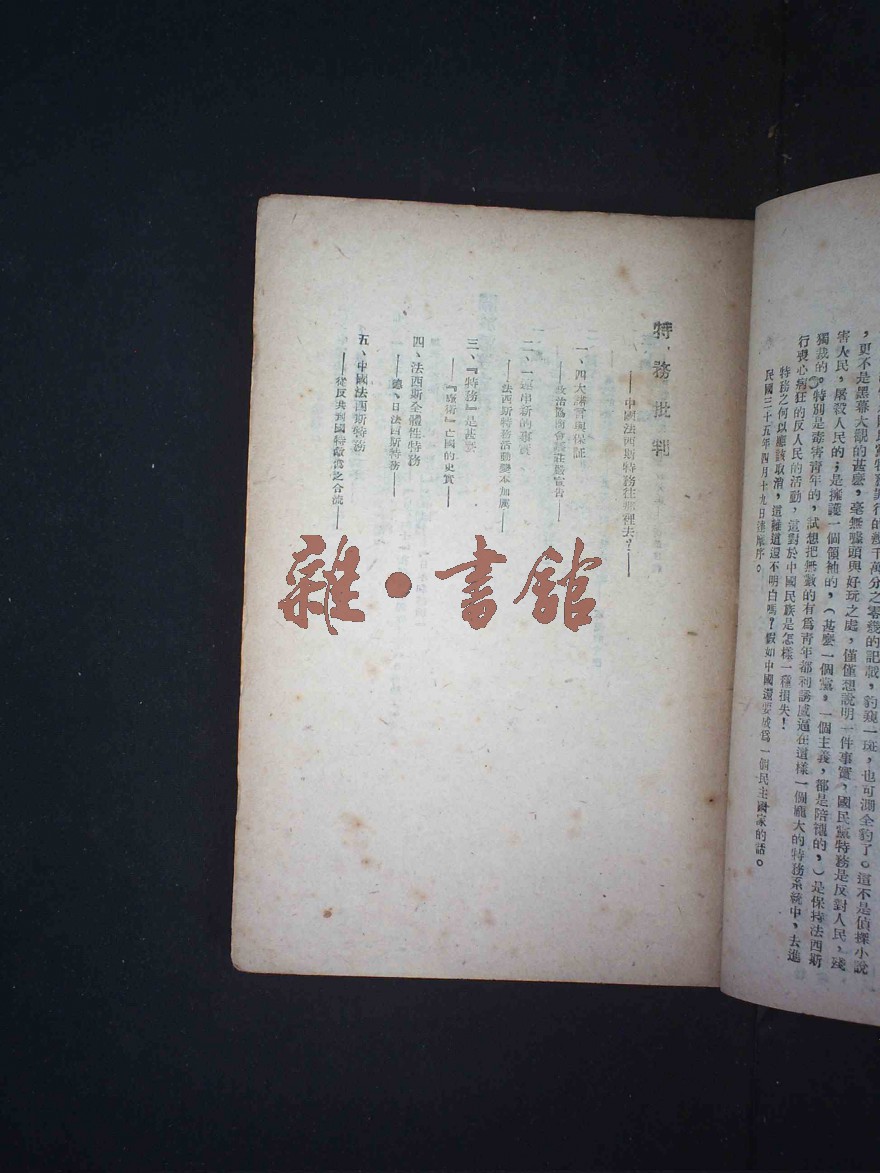 ，更不是黑幕大觀的甚麽，毫無噱頭與好玩之處，僅僅想說明一件事實，國民黨特務是反對人民，殘
害人民，屠殺人民的；是擁護一個領袖的，（甚麽一個黨，一個主義，都是陪襯的，）是保持法西斯
獨裁的。特別是毒害青年的，試想把無數的有爲青年都利誘威逼在這樣一個龐大的特務系統中，去進
行喪心病狂的反人民的活動，這對於中國民族是怎樣一種損失！
特務之何以應該取消，這難道還不明白嗎？假如中國還要成爲一個民主國家的話。
民國三十五年四月十九日達摩序。
特務批判
——中國法西斯特務往那裡去？——
一、四大諾言與保証
——政治協商會議莊嚴宣告——
二、一連串新的事實
——法西斯特務活動變本加厲——
三、『特務』是甚麽
——『廠衛』亡國的史實——
四、法西斯全體性特務
——德、日法西斯特務——
五、中國法西斯特務
——從反共到國特敵僞之合流——
雜·書館